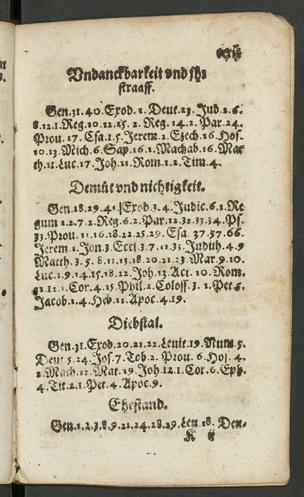 Vndanckbarkeit vnd jhr
straaff.
Gen.31.40.Exod.1. Deut.23.Jud.2.6.
8.12.1.Reg.10.12.15.2.Reg.14.2.Par.24.
Prou.17.Esa.1.5.Jerem.2.Ezech.16.Hos.
10.13.Mich.6.Sap.16.1.Machab.16.Mat
th.21.Luc.17.Joh.11.Rom.1.2.Tim.4.
Demüt vnd nichtigkeit.
Gen.18.29.41.Exod.3.4.Judic.6.1.Re
gum 1.2.7.2.Reg.6.2.Par.12.32.33.34.Ps.
33.Prou.11.16.18.22.25.29.Esa.37.57.66.
Jerem.1.Jon.3.Eccl.3.7.11.35.Judith.4.9
Matth.3.5.8.11.15.18.20.21.23.Mar.9.10.
Luc.1.9.14.15.18.22.Joh.13.Act.10.Rom.
11.12.1.Cor.4.15.Phil.2.Coloss.3.1.Pet.5.
Jacob.1.4.Heb.11.Apoc.4.19.
Diebstal.
Gen.31.Exod.20.21.22.Leuit.19.Num.5.
Deut.5.24.Jos.7.Tob.2.Prou.6.Hos.4.
2.Mach.12.Mat.19.Joh.12.1.Cor.6.Eph.
4.Tit.2.1.Pet.4.Apoc.9.
Ehestand.
Gen.1.2.3.8.9.21.24.28.29.Leu.18. Deu-
K ij